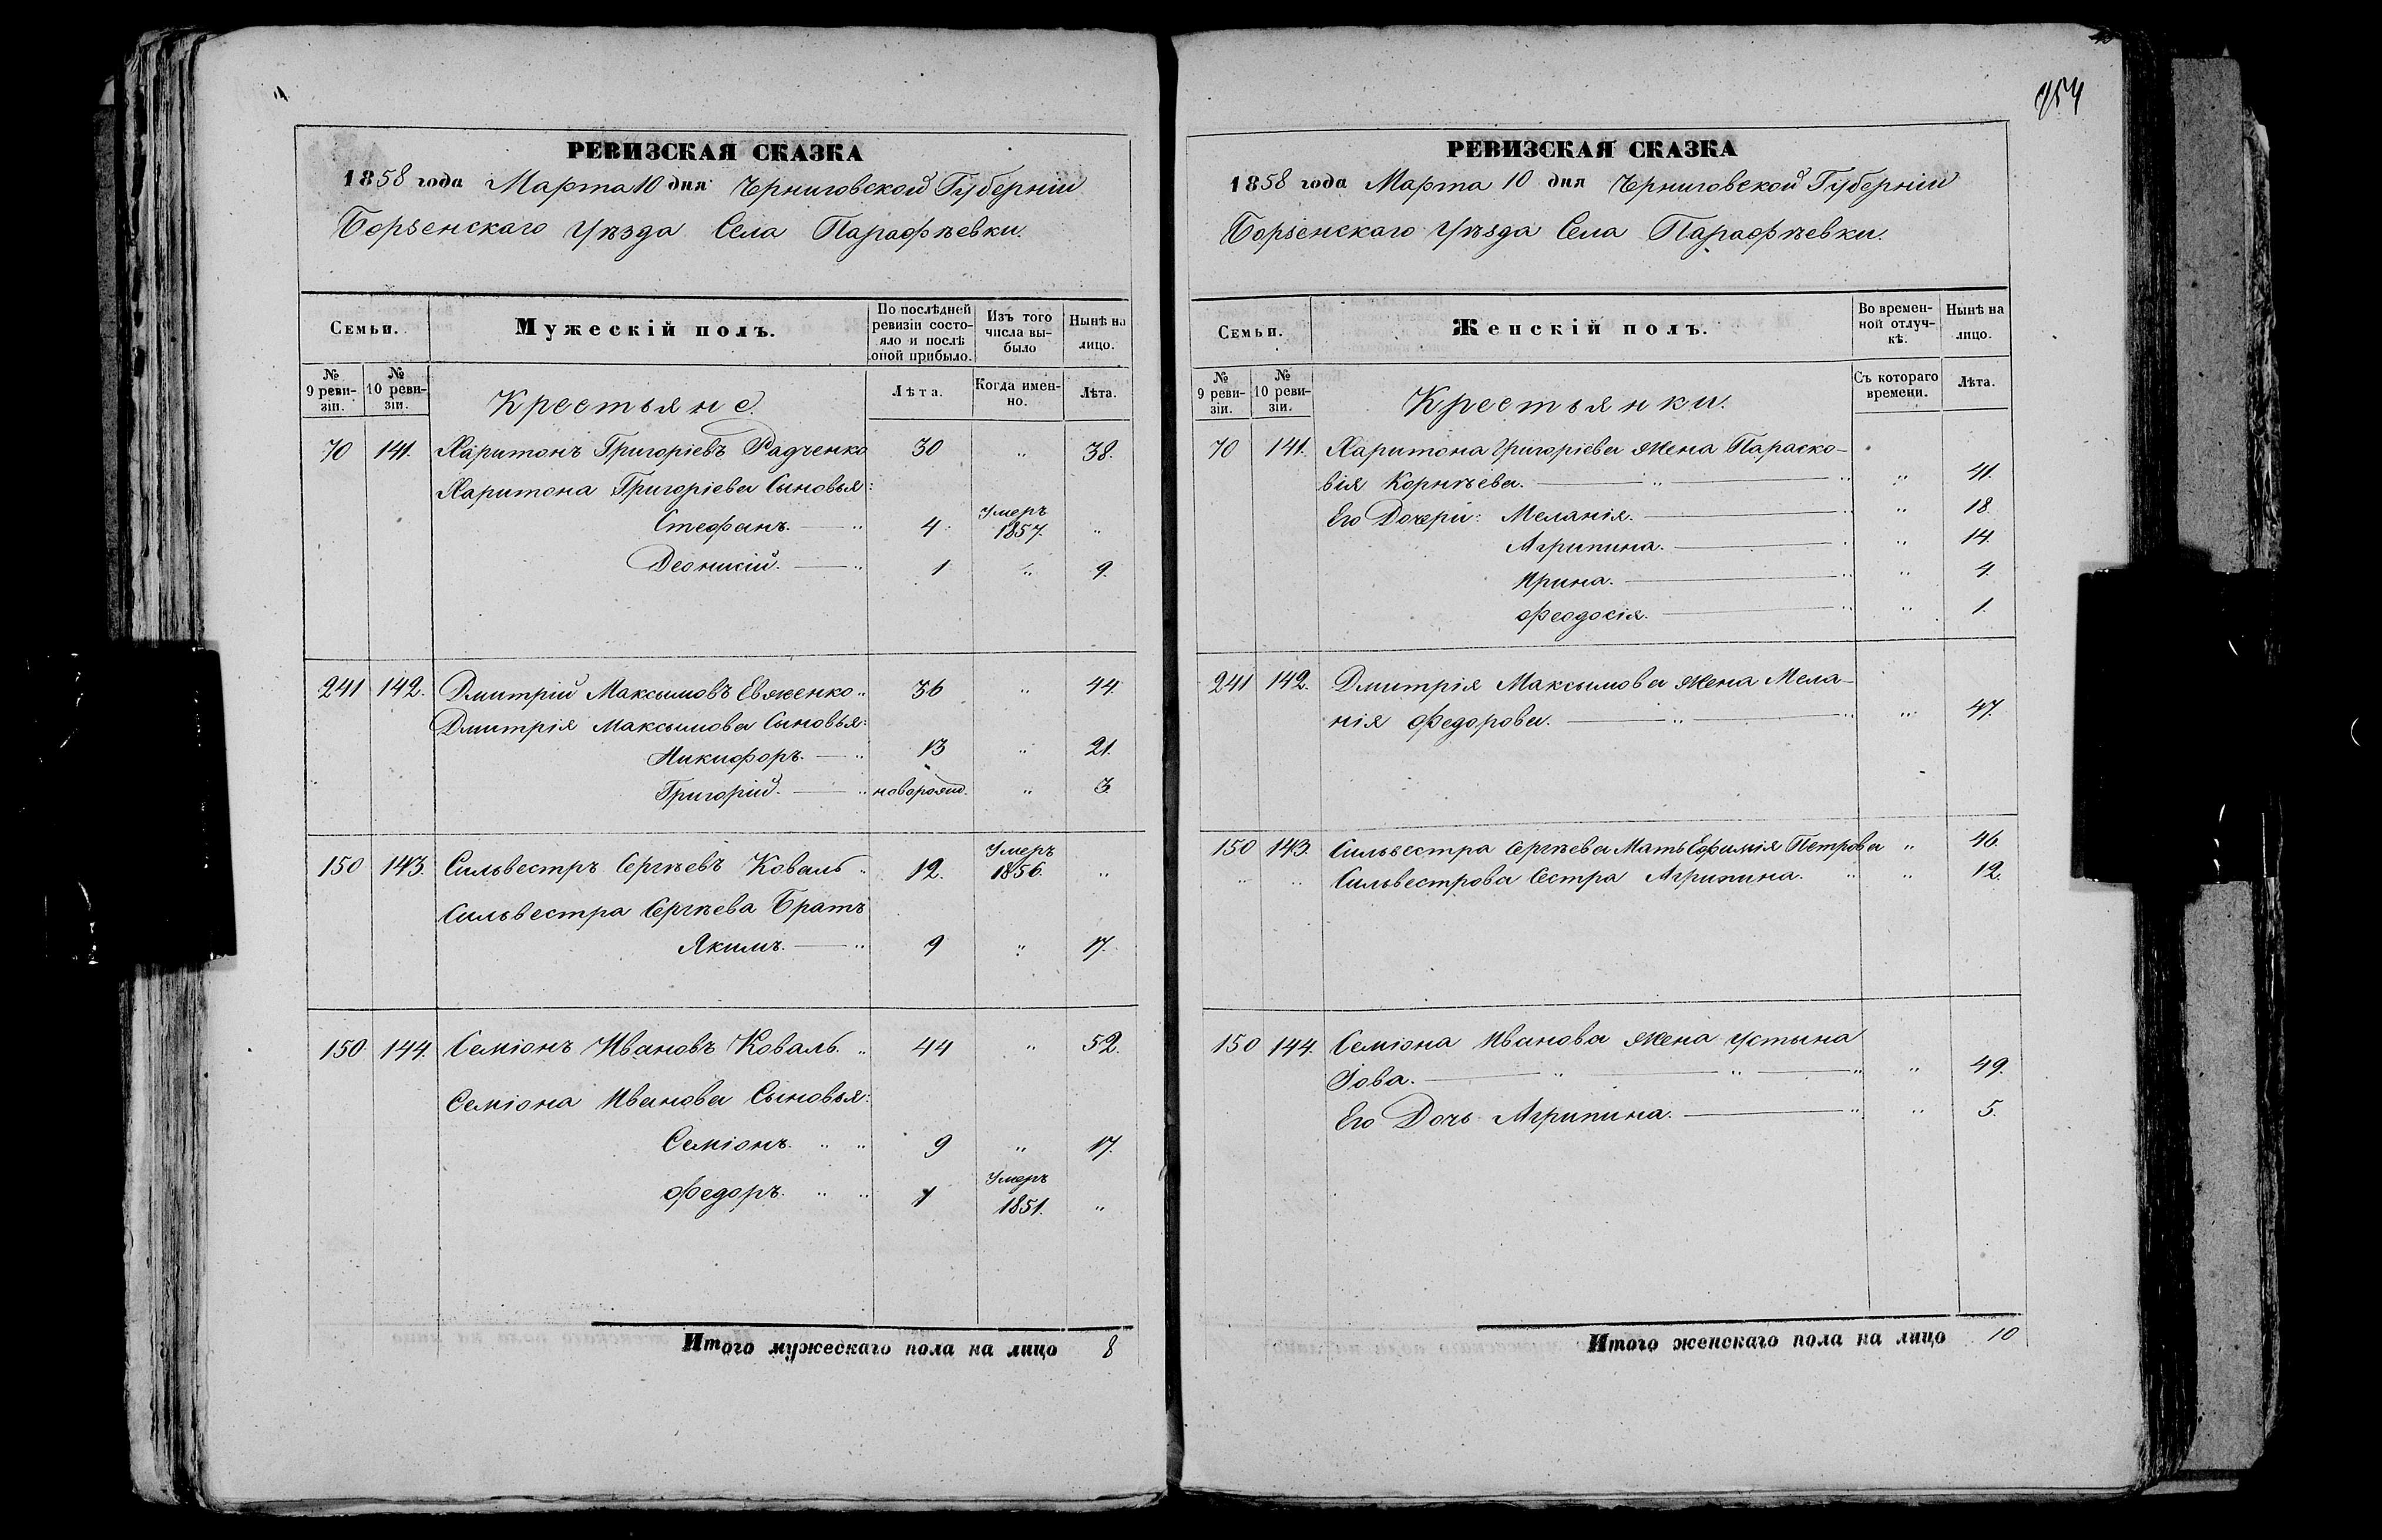 РЕВИЗСКАЯ СКАЗКА
1858 года Марта 10 дня Черниговской Губерніи
Борзенскаго Уѣзда Села Парафѣевки.
Семьи. Мужескій полъ. По послѣдней ревизіи состояло и послѣ оной прибыло. Изъ того числа выбыло Нынѣ на лицо.
№ 9 ревизіи. № 10 ревизіи. Крестьяне. Лѣта. Когда именно. Лѣта.
70 141. Харитонъ Григоріевъ Радченко 30 " 38.
Харитона Григоріева Сыновья:
Стефанъ. — " 4 Умеръ 1857. "
Деонисій. — " 1 " 9.
241 142. Дмитрій Максымовъ Евженко " 36 " 44
Дмитрія Максымова Сыновья:
Никифоръ. — " 13 " 21.
Григорій. — " новорожд. " 3.
150 143. Сильвестръ Сергѣевъ Коваль " 12. Умеръ 1856. "
Сильвестра Сергѣева Братъ
Якимъ. — " 9 " 17.
150 144. Семіонъ Ивановъ Коваль. " 44 " 52.
Семіона Иванова Сыновья:
Семіонъ. " " 9 " 17.
Федоръ. " " 1 Умеръ 1851. "
Итого мужескаго пола на лицо 8
954
РЕВИЗСКАЯ СКАЗКА
1858 года Марта 10 дня Черниговской Губерніи
Борзенскаго Уѣзда Села Парафѣевки.
Семьи. Женскій полъ. Во временной отлучкѣ. Нынѣ на лицо.
№ 9 ревизіи. № 10 ревизіи. Крестьянки. Съ котораго времени. Лѣта.
70 141. Харитона Григоріева Жена Параско-
вія Корнѣева. — " — " " 41.
Его Дочери: Меланія. — " " 18.
Агрипина. — " " 14.
Ирина. — " " 4.
Феодосія. — " " 1.
241 142. Дмитрія Максымова Жена Мела-
нія Федорова. — " — " " 47.
150 143. Сильвестра Сергѣева Мать Ефимія Петрова " 46.
" " Сильвестрова Сестра Агрипина. " " 12.
150 144. Семіона Иванова Жена Устына
Іова. — " — " — " " 49.
Его Дочь Агрипина. — " " 5.
Итого женскаго пола на лицо 10